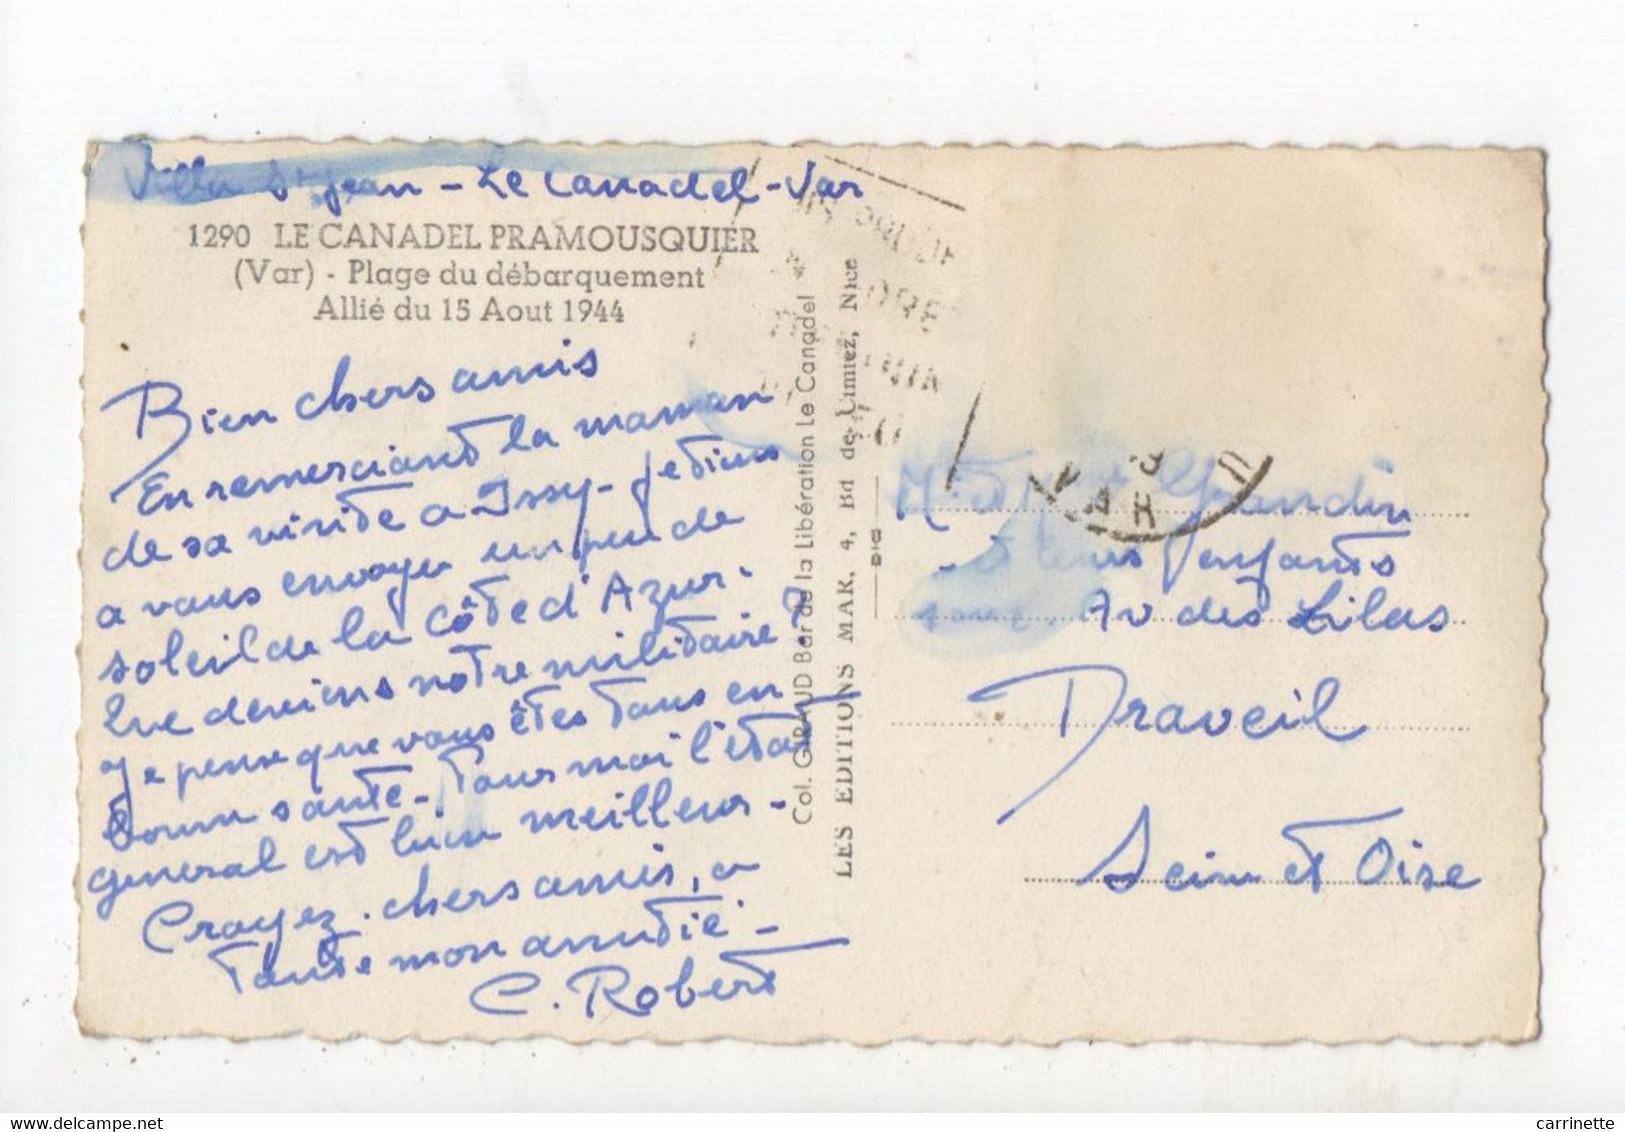 Villa St Jean - Le Canadel - Var
1290 LE CANADEL PRAMOUSQUIER
(Var) - Plage du débarquement
Allié du 15 Aout 1944
Bien chers amis
En remerciant la maman
de sa visite a Issy - je tiens
a vous envoyer un peu de
soleil de la Côte d'Azur.
Que deviens notre militaire ?
Je pense que vous êtes tous en
bonne santé - Pour moi l'état
general est bien meilleur -
Croyez, chers amis, a
toute mon amitié -
C. Robert
Col. GIRAUD Bar de la Libération Le Canadel
LES EDITIONS MAR, 4, Bd de Cimiez, Nice
Grandin
enfants
Av des Lilas
Draveil
Seine et Oise
carrinette